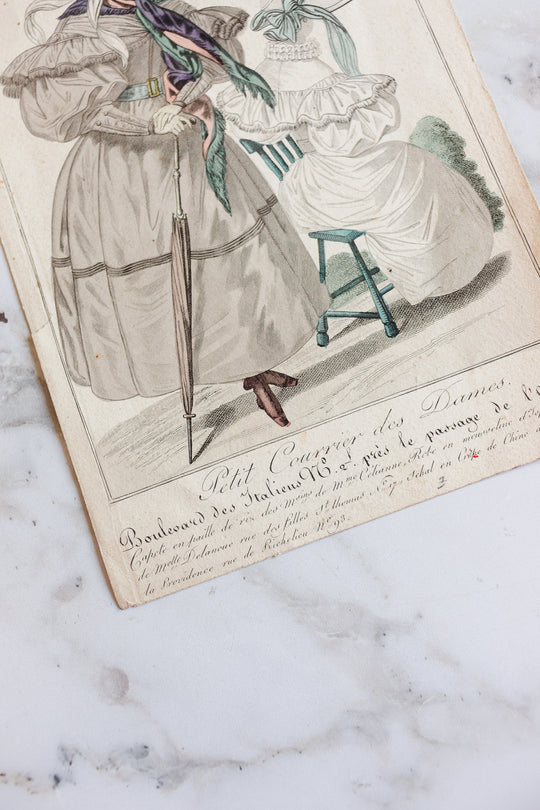 Petit Courrier des Dames.
Boulevard des Italiens N.º 2. près le passage de l'
Capote en paille de riz des Mⁱⁿˢ de Mᵐᵉ Célianne, Robe en mousseline
de Melle Delanoue rue des filles St thomas Nº 7. Schal en Crêpe de Chine
la Providence rue de Richelieu Nº 93.